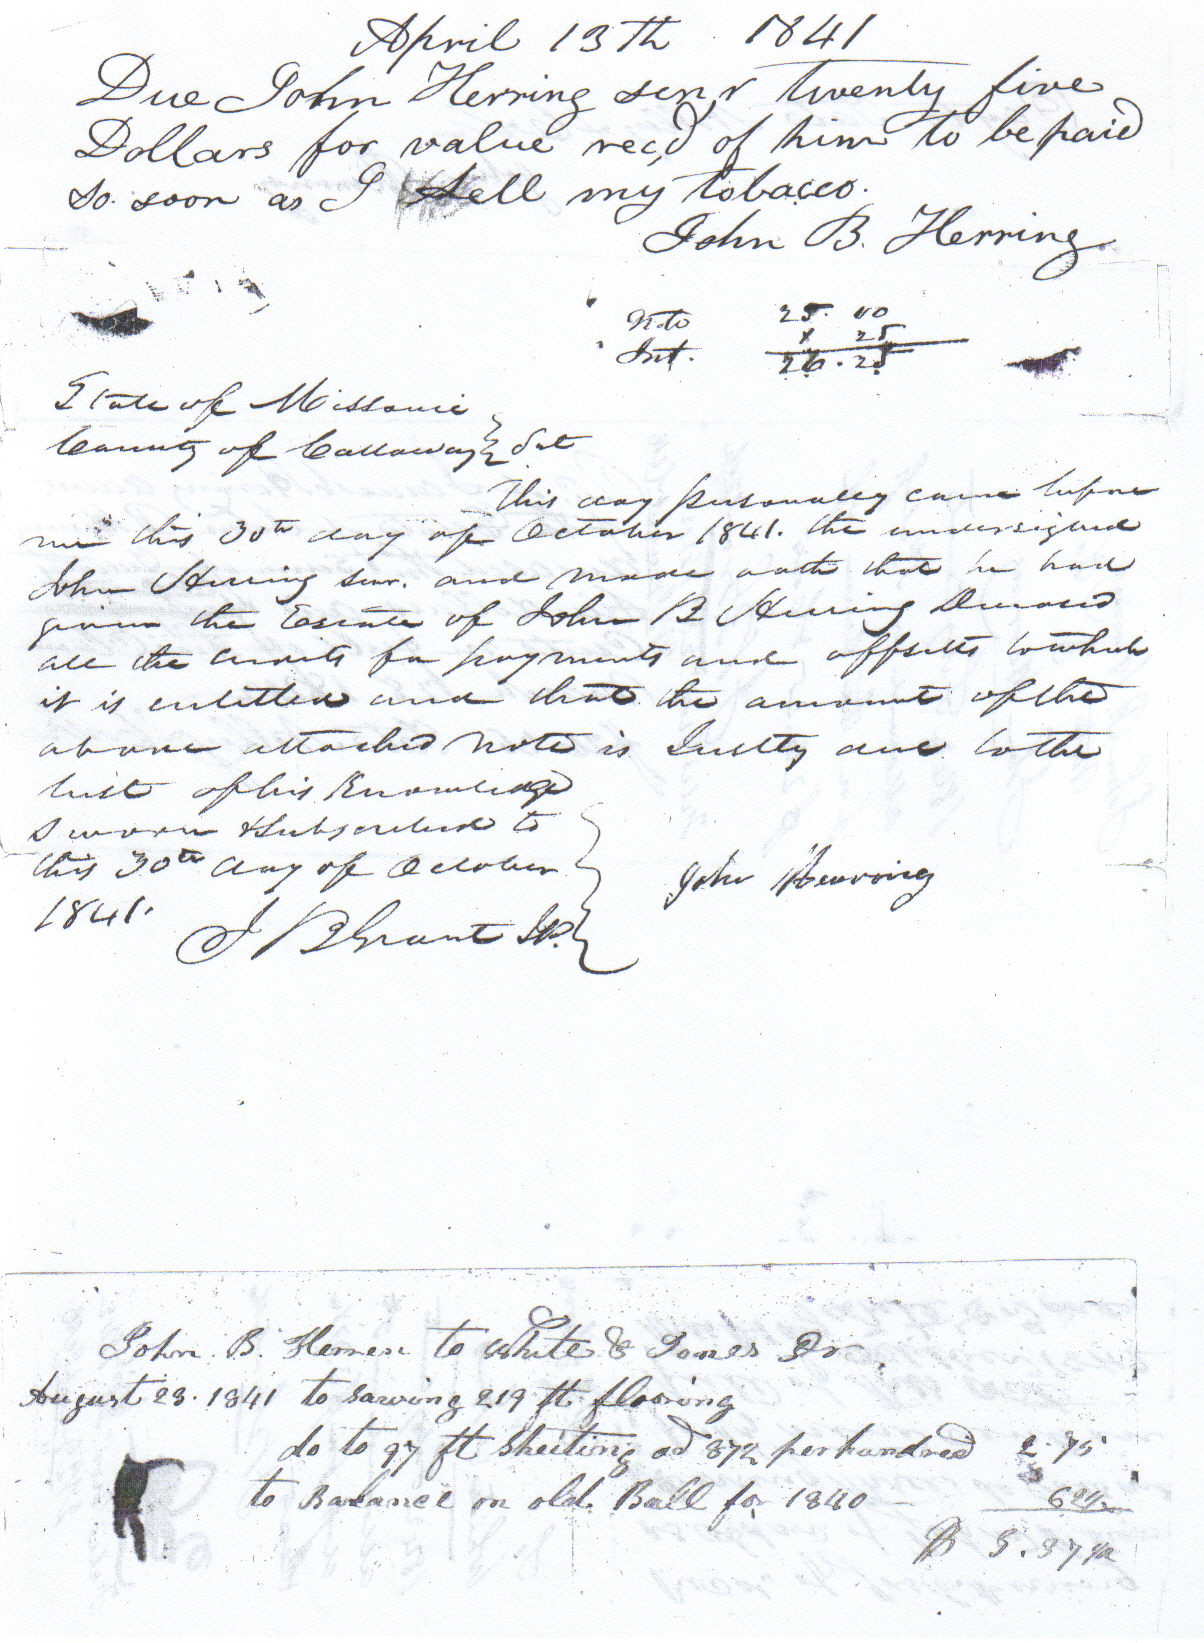 April 13th 1841
Due John Herring senr twenty five
Dollars for value rec,d of him to be paid
so soon as I sell my tobacco.
John B. Herring
Note 25.00
x 25
Int. 26.25
State of Missouri
County of Callaway } Sct
This day personally came before
me this 30th day of October 1841. the undersigned
John Herring senr. and made oath that he had
given the Estate of John B Herring Deceased
all the credits for payments and offsetts to which
it is entitled and that the amount of the
above attached note is Justly due to the
best of his Knowledge
Sworn & Subscribed to
this 30th day of October
1841.
John Hearring
J B Grant JP.
John B. Herren to White & Jones Dr.
August 23. 1841 to sawing 219 ft flooring
do to 97 ft sheiting ad 87½ per hundred 2.75
to Barlance on old Ball for 1840 62½
$ 3.37½